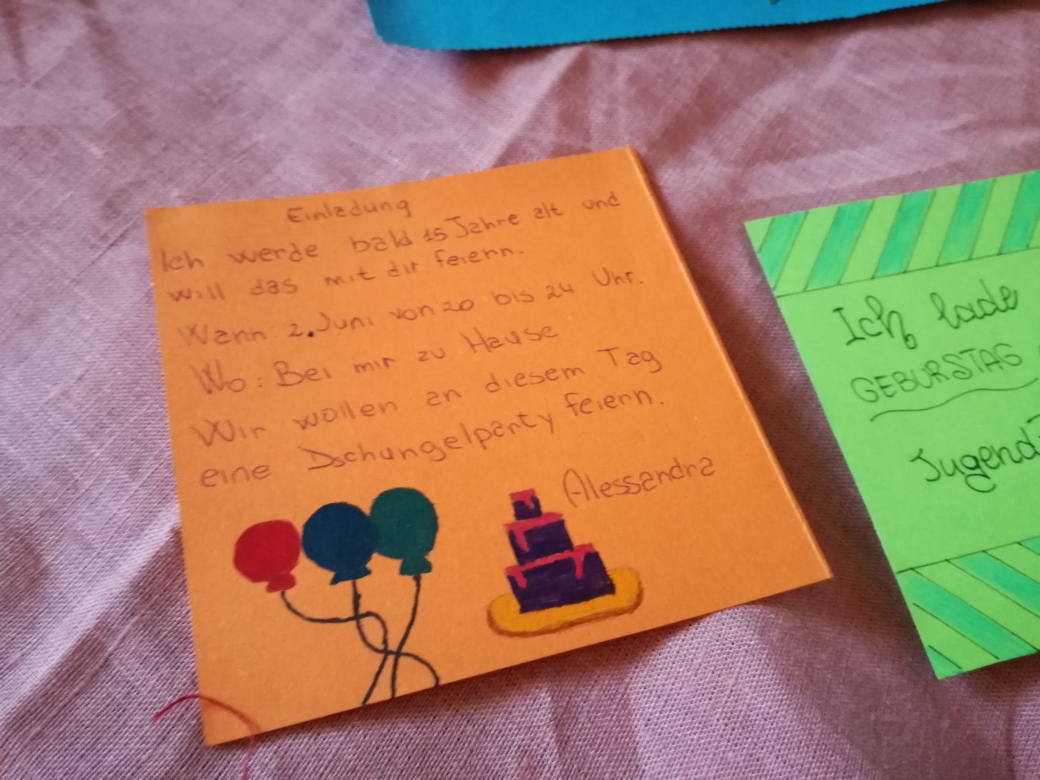 Einladung
Ich werde bald 15 Jahre alt und
will das mit dir feiern.
Wann: 2. Juni von 20 bis 24 Uhr.
Wo: Bei mir zu Hause
Wir wollen an diesem Tag
eine Dschungelparty feiern.
Alessandra
Ich lade
GEBURSTAG
Jugend